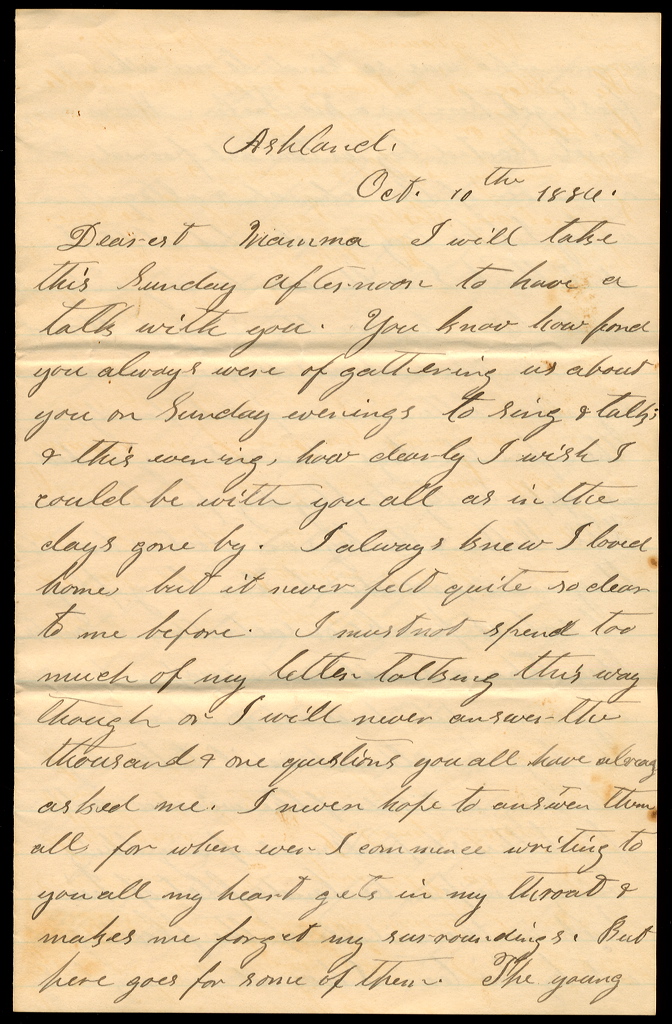 Ashland.
Oct. 10th 1886.
Dearest Mamma I will take
this Sunday afternoon to have a
talk with you. You know how fond
you always were of gathering us about
you on Sunday evenings to sing & talk;
& this evening, how dearly I wish I
could be with you all as in the
days gone by. I always knew I loved
home, but it never felt quite so dear
to me before. I must not spend too
much of my letter talking this way
though or I will never answer the
thousand & one questions you all have already
asked me. I never hope to answer them
all, for when ever I commence writing to
you all my heart gets in my throat &
makes me forget my surroundings. But
here goes for some of them. The young